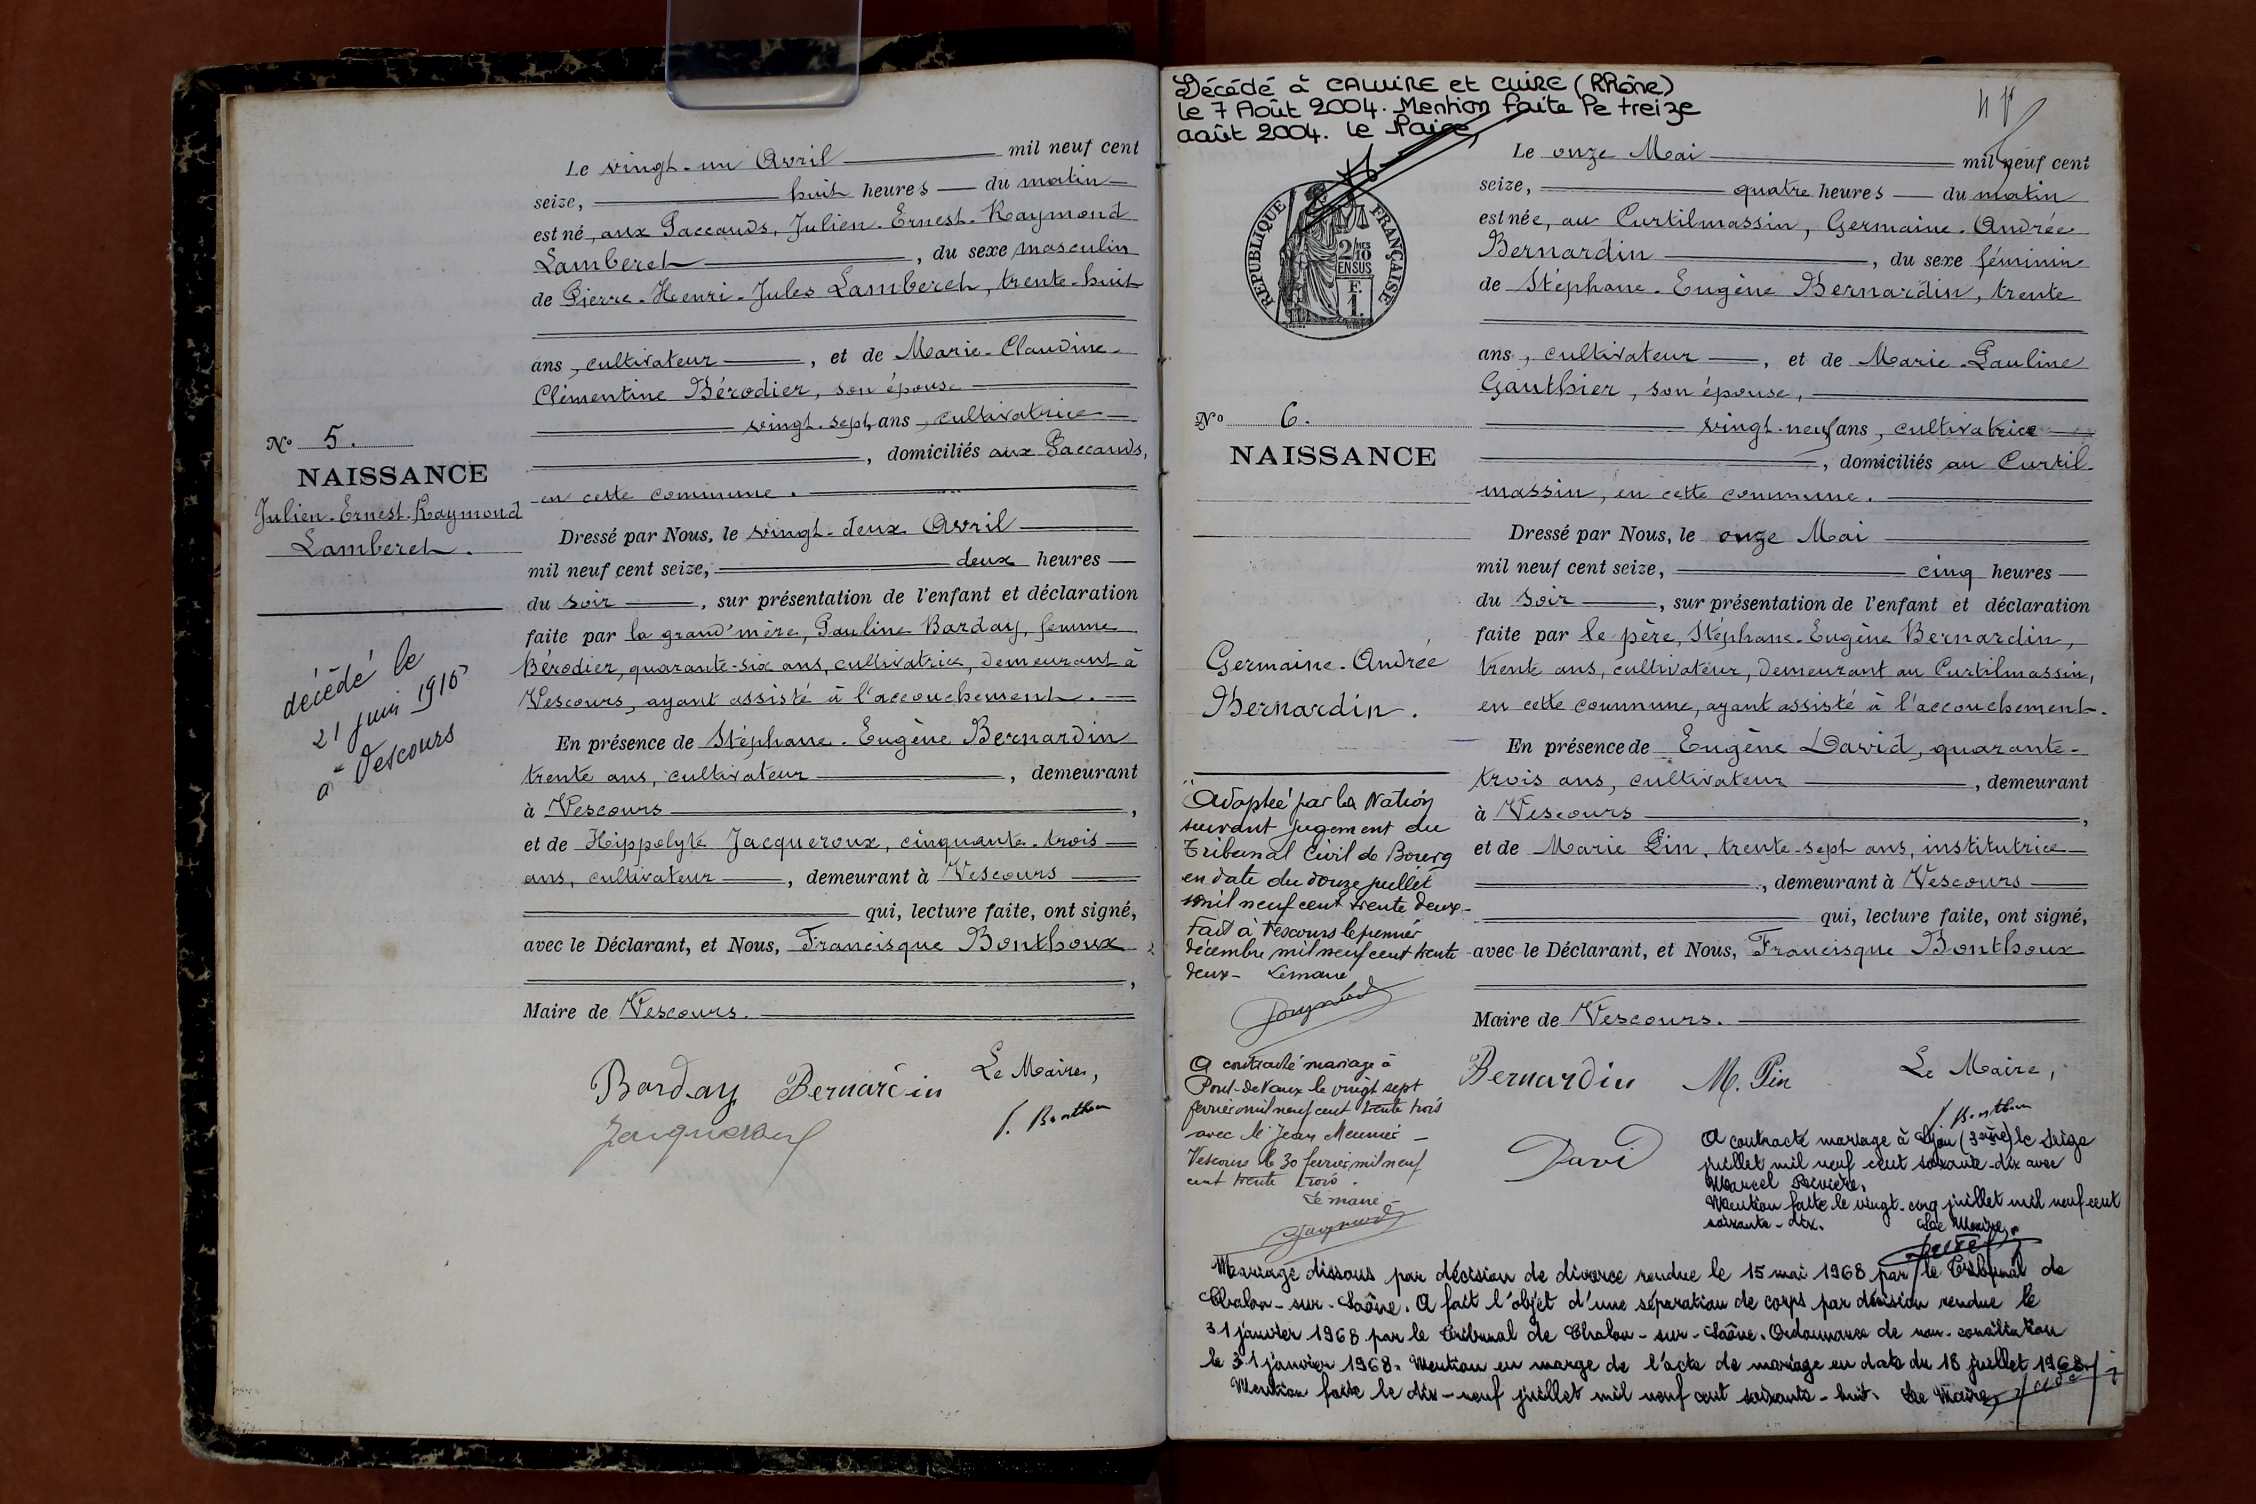 Le vingt-un Avril mil neuf cent
seize, huit heures du matin
est né, aux Paccauds, Julien-Ernest-Raymond
Lamberet, du sexe masculin
de Pierre-Henri-Jules Lamberet, trente-huit
ans, cultivateur, et de Marie-Claudine-
Clémentine Bérodier, son épouse
vingt-sept ans, cultivatrice
, domiciliés aux Paccauds,
en cette commune.
Dressé par Nous, le vingt-deux Avril
mil neuf cent seize, deux heures
du soir, sur présentation de l'enfant et déclaration
faite par la grand'mère, Pauline Barday, femme
Bérodier, quarante-six ans, cultivatrice, demeurant à
Vescours, ayant assisté à l'accouchement.
En présence de Stéphane-Eugène Bernardin
trente ans, cultivateur, demeurant
à Vescours,
et de Hippolyte Jacqueroux, cinquante-trois
ans, cultivateur, demeurant à Vescours
qui, lecture faite, ont signé,
avec le Déclarant, et Nous, Francisque Bonthoux
,
Maire de Vescours.
Le Maire,
Barday Bernardin
F. Bonthoux
Jacqueroux
N° 5.
NAISSANCE
Julien-Ernest-Raymond
Lamberet.
décédé le
21 juin 1916
à Vescours
Décédé à CALUIRE et CUIRE (Rhône)
le 7 Août 2004. Mention faite le treize
août 2004. Le Maire,
RÉPUBLIQUE FRANÇAISE
2/10
EN SUS
F.
1.
Le onze Mai mil neuf cent
seize, quatre heures du matin
est née, au Curtilmassin, Germaine-Andrée
Bernardin, du sexe féminin
de Stéphane-Eugène Bernardin, trente
ans, cultivateur, et de Marie-Pauline
Gauthier, son épouse,
vingt-neuf ans, cultivatrice
, domiciliés au Curtil-
massin, en cette commune.
Dressé par Nous, le onze Mai
mil neuf cent seize, cinq heures
du soir, sur présentation de l'enfant et déclaration
faite par le père, Stéphane-Eugène Bernardin,
trente ans, cultivateur, demeurant au Curtilmassin,
en cette commune, ayant assisté à l'accouchement.
En présence de Eugène David, quarante-
trois ans, cultivateur, demeurant
à Vescours,
et de Marie Pin, trente-sept ans, institutrice
, demeurant à Vescours
qui, lecture faite, ont signé,
avec le Déclarant, et Nous, Francisque Bonthoux
Maire de Vescours.
Bernardin M. Pin Le Maire,
F. Bonthoux
David
N° 6.
NAISSANCE
Germaine-Andrée
Bernardin.
Adoptée par la Nation
suivant jugement du
Tribunal Civil de Bourg
en date du douze juillet
mil neuf cent trente deux-
Fait à Vescours le premier
décembre mil neuf cent trente
deux- Le maire
A contracté mariage à
Pont-de-Vaux le vingt sept
février mil neuf cent trente trois
avec M. Jean Meunier
Vescours le 30 février mil neuf
cent trente trois.
Le maire
A contracté mariage à Lyon (3ème) le seize
juillet mil neuf cent soixante-dix avec
Marcel Rivière.
Mention faite le vingt-cinq juillet mil neuf cent
soixante-dix. Le Maire,
Mariage dissous par décision de divorce rendue le 15 mai 1968 par le Tribunal de
Chalon-sur-Saône. A fait l'objet d'une séparation de corps par décision rendue le
31 janvier 1968 par le Tribunal de Chalon-sur-Saône. Ordonnance de non-conciliation
le 31 janvier 1968. Mention en marge de l'acte de mariage en date du 18 juillet 1968.
Mention faite le dix-neuf juillet mil neuf cent soixante-huit. Le Maire,